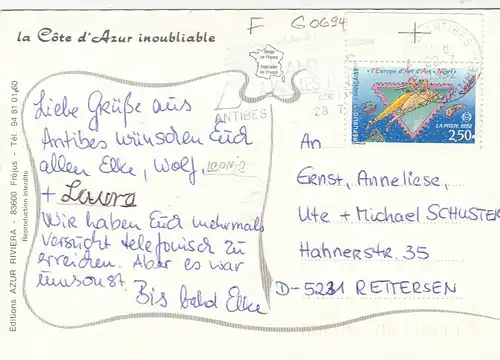 F G0694
la Côte d'Azur inoubliable
Image de France
ANTIBES
ANTIBES
28 7
«l'Europe d'Art d'Art - Niort»
RÉPUBLIQUE FRANÇAISE
LA POSTE 1992
2,50
Liebe Grüße aus
Antibes wünschen Euch
allen Elke, Wolf, LEONIE
+ Laura
Wir haben Euch mehrmals
versucht telefonisch zu
erreichen. Aber es war
umsonst.
Bis bald Elke
An
Ernst, Anneliese,
Ute + Michael SCHUSTER
Hahnerstr. 35
D-5231 RETTERSEN
Editions AZUR RIVIERA - 83600 Fréjus - Tél. 94 81 01 60
Reproduction interdite